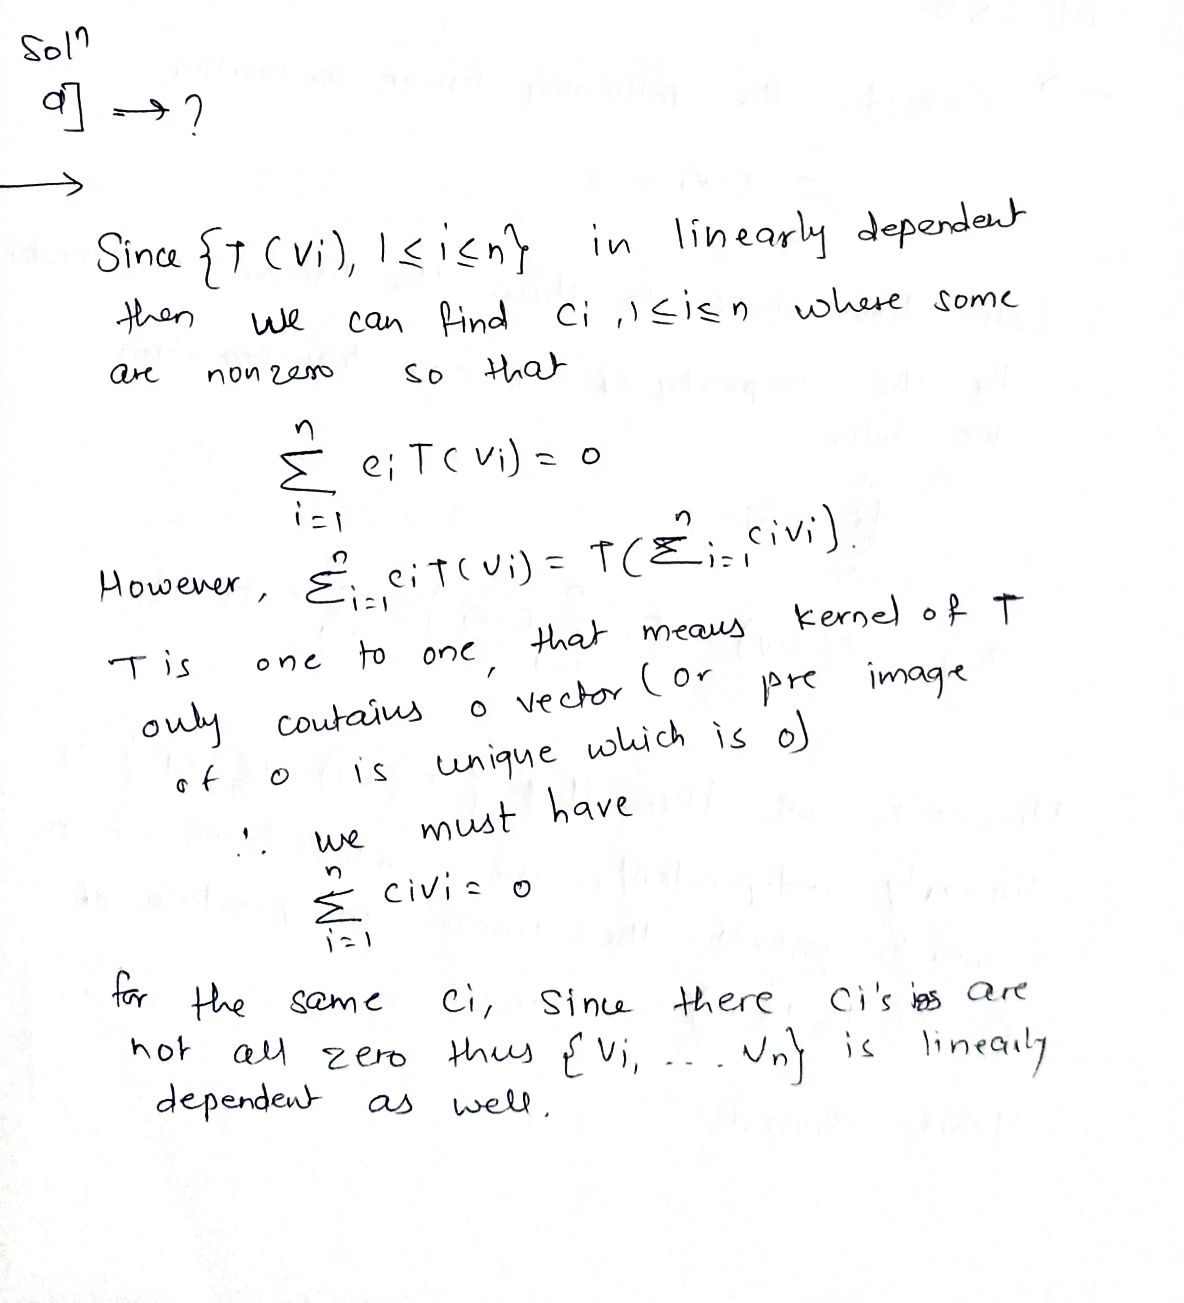 Solⁿ
a] → ?
→
Since {T(vi), 1≤i≤n} in linearly dependent
then we can find ci, 1≤i≤n where some
are nonzero so that
n
Σ ci T(vi) = 0
i=1
However, Σⁿi=1 ciT(vi) = T(Σⁿi=1 civi).
T is one to one, that means kernel of T
only contains 0 vector (or pre image
of 0 is unique which is 0)
∴ we must have
n
Σ civi = 0
i=1
for the same ci, Since there ci's are
not all zero thus {vi, ... vn} is linearly
dependent as well.